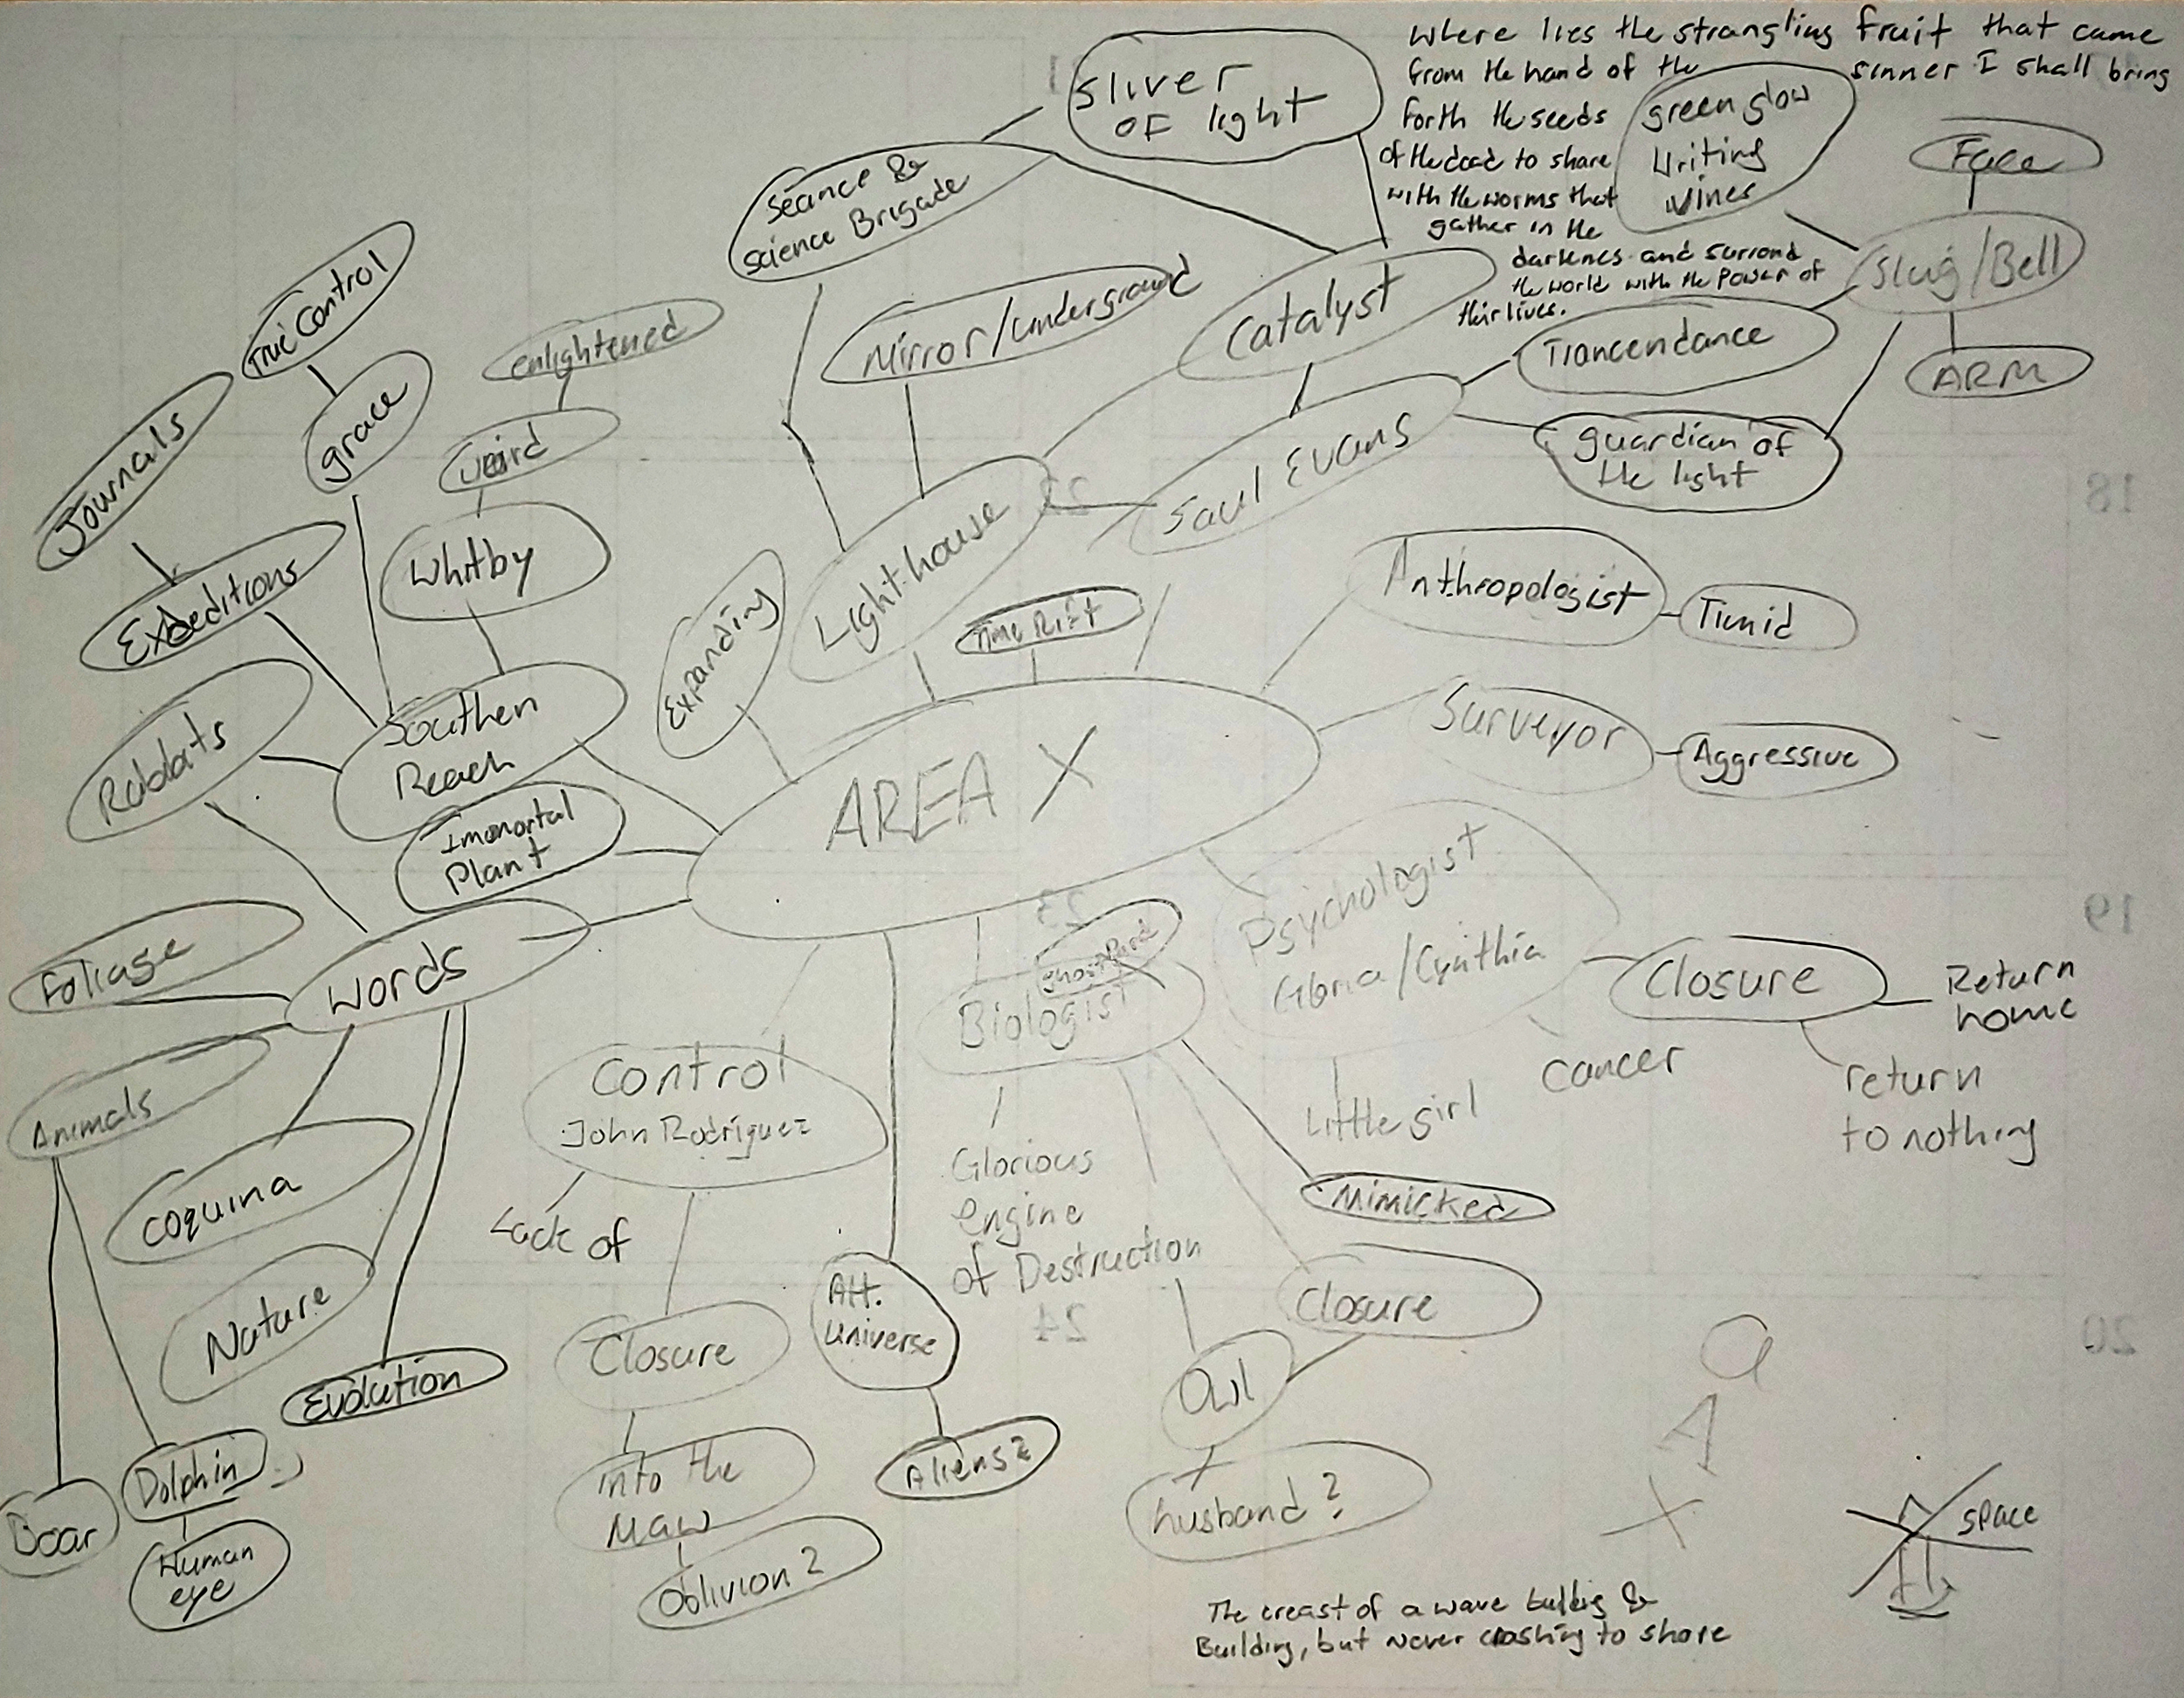 Where lies the strangling fruit that came
from the hand of the sinner I shall bring
forth the seeds
of the dead to share
with the worms that
gather in the
darknes and surrond
the world with the Power of
thir lives.
Sliver
OF light
green glow
Writing
Vines
Face
Slug/Bell
ARM
Seance &
Science Brigade
Mirror/underground
Catalyst
Trancendance
guardian of
the light
Saul Evans
Lighthouse
True Control
grace
Journals
enlightened
weird
Whitby
Expeditions
Rabbits
Southern
Reach
Immortal
Plant
Expanding
Time Rift
AREA X
Anthropologist
Timid
Surveyor
Aggressive
Psychologist
Gloria/Cynthia
Closure
Return
home
return
to nothing
cancer
Little girl
Ghost Bird
Biologist
Mimicked
Closure
Glorious
engine
of Destruction
Owl
husband?
Control
John Rodriguez
Lack of
Closure
into the
Maw
Oblivion?
Alt.
Universe
Aliens?
words
Foliage
Animals
coquina
Nature
Evolution
Dolphin
Human
eye
Boar
a
A
X
space
The creast of a wave building &
Building, but never crashing to shore
18
19
20
22
23
24